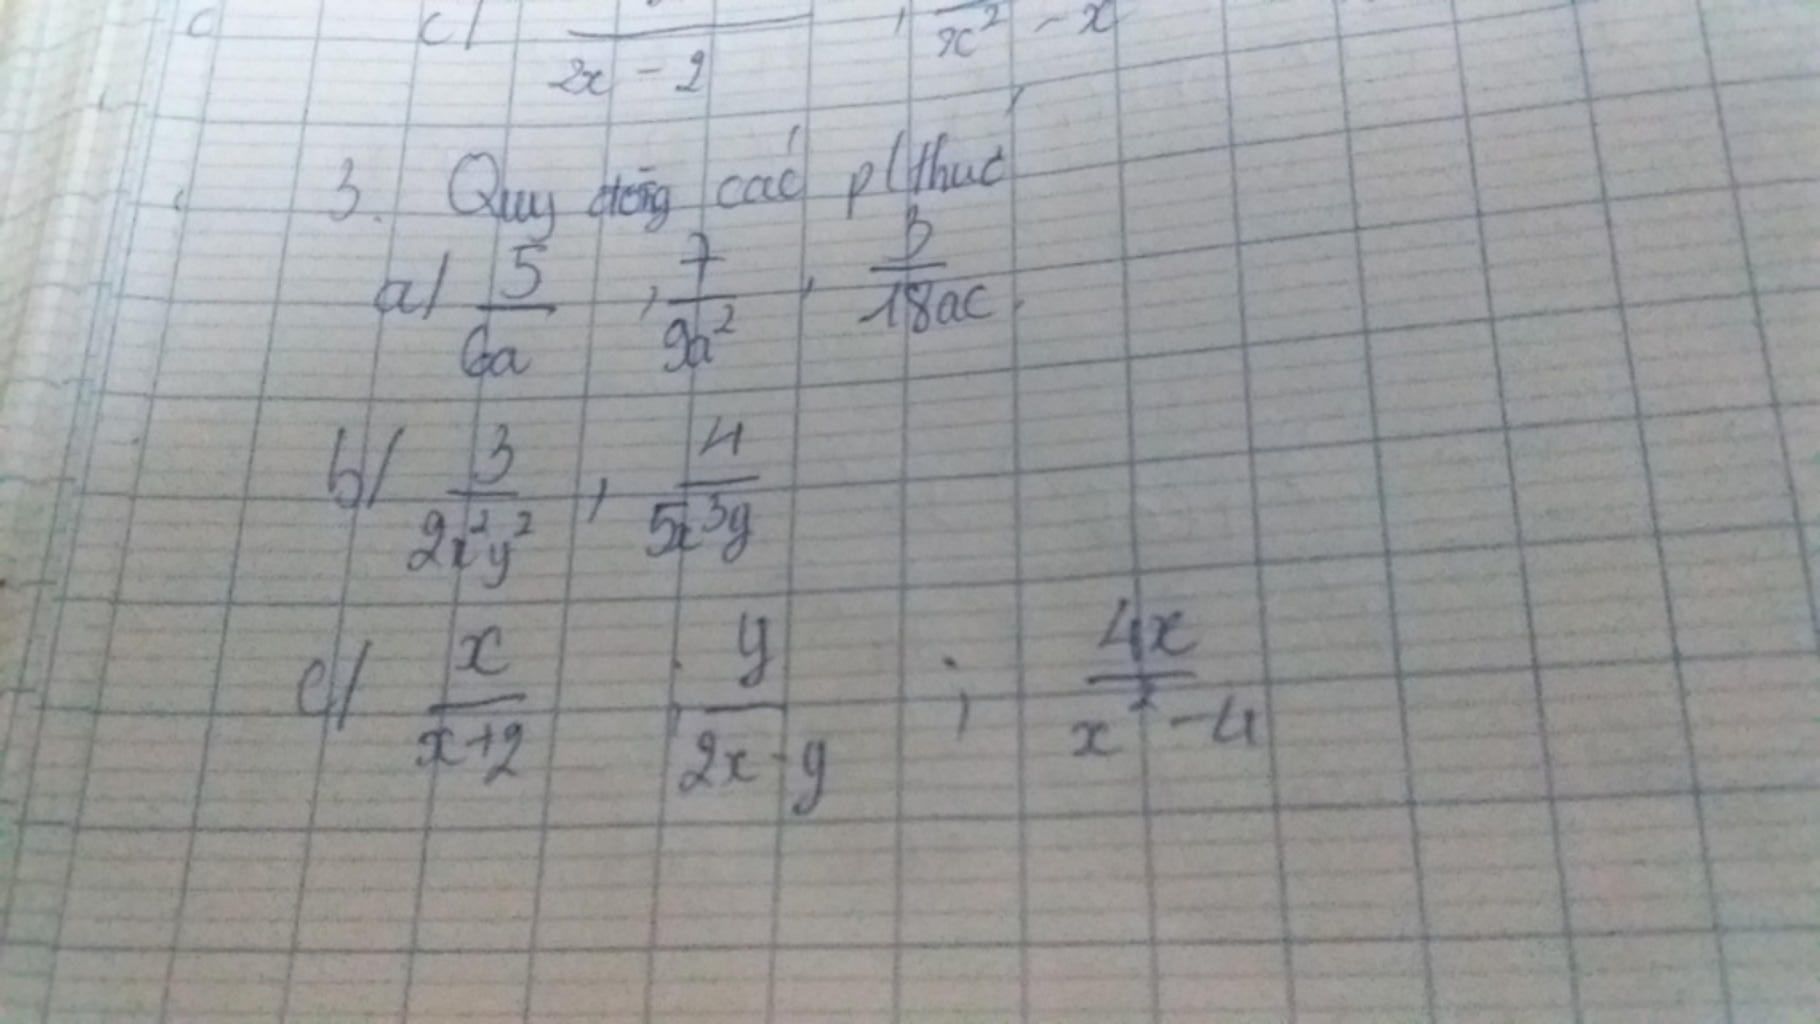 c c/ 2x - 2 , x² - x
3. Quy đồng các p/thức
a/ 5/6a , 7/9a² , 3/18ac
b/ 3/2x²y² , 4/5x³y
c/ x/x+2 ; y/2x-y ; 4x/x²-4